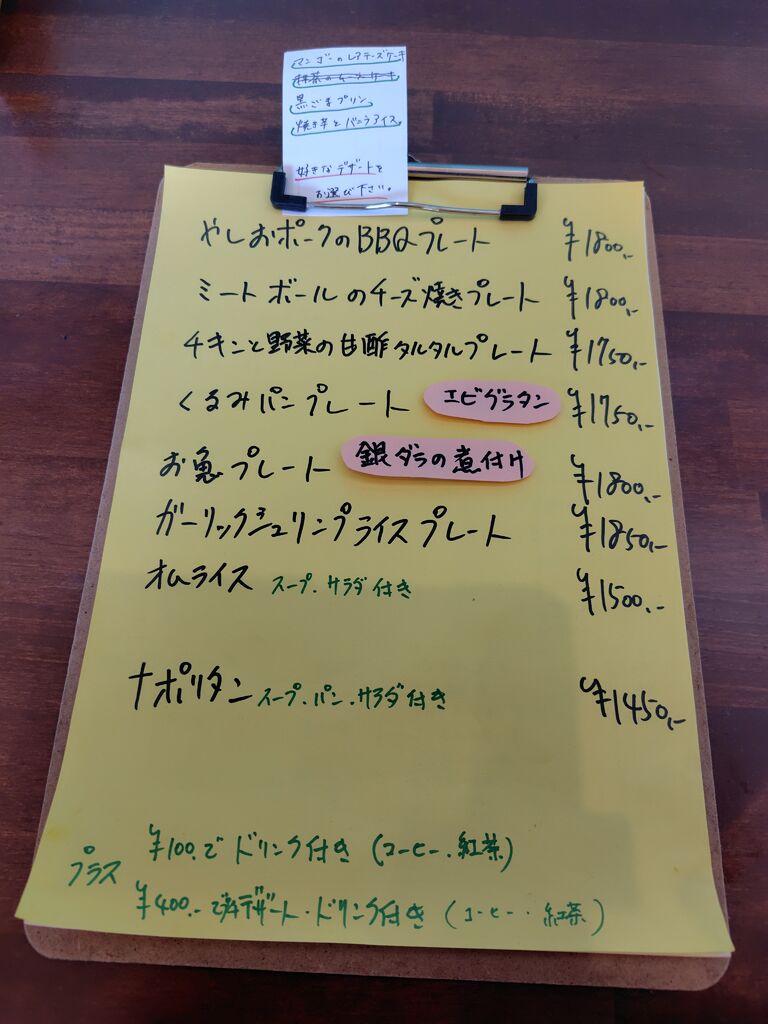 マンゴーのレアチーズケーキ
抹茶のチーズケーキ
黒ごまプリン
焼き芋とバニラアイス
好きなデザートを
お選び下さい。
やしおポークのBBQプレート ¥1800.-
ミートボールのチーズ焼きプレート ¥1800.-
チキンと野菜の甘酢タルタルプレート ¥1750.-
くるみパンプレート エビグラタン ¥1750.-
お魚プレート 銀ダラの煮付け ¥1800.-
ガーリックシュリンプライスプレート ¥1850.-
オムライス スープ・サラダ付き ¥1500.-
ナポリタン スープ・パン・サラダ付き ¥1450.-
プラス ¥100.でドリンク付き (コーヒー・紅茶)
¥400.-でデザート・ドリンク付き (コーヒー・紅茶)